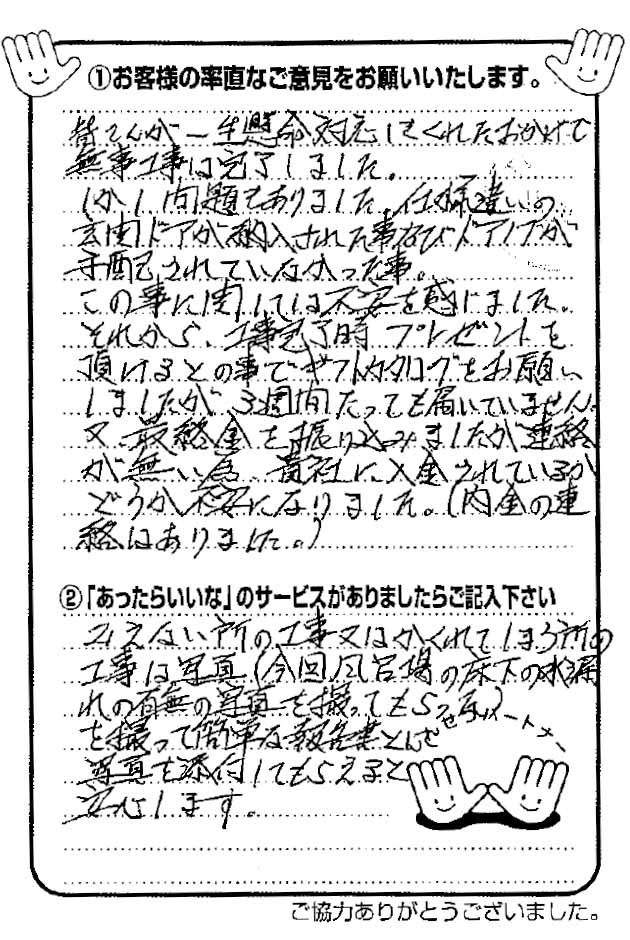 ①お客様の率直なご意見をお願いいたします。
皆さんが一生懸命対応してくれたおかげで
無事工事は完了しました。
しかし問題もありました。仕様違いの
玄関ドアが納入された事及びドアノブが
手配されていなかった事。
この事に関しては不安を感じました。
それから、工事完了時プレゼントを
頂けるとの事でギフトカタログをお願い
しましたが、3週間たっても届いていません。
又、最終金を振り込みましたが連絡
が無い為、貴社に入金されているか
どうか不安になりました。(内金の連
絡はありました。)
②「あったらいいな」のサービスがありましたらご記入下さい
みえない所の工事又はかくれてしまう所の
工事は写真(今回風呂場の床下の水漏
れの有無の写真を撮ってもらった)
を撮って簡単な報告書と
写真を添付してもらえると
安心します。
ご協力ありがとうございました。